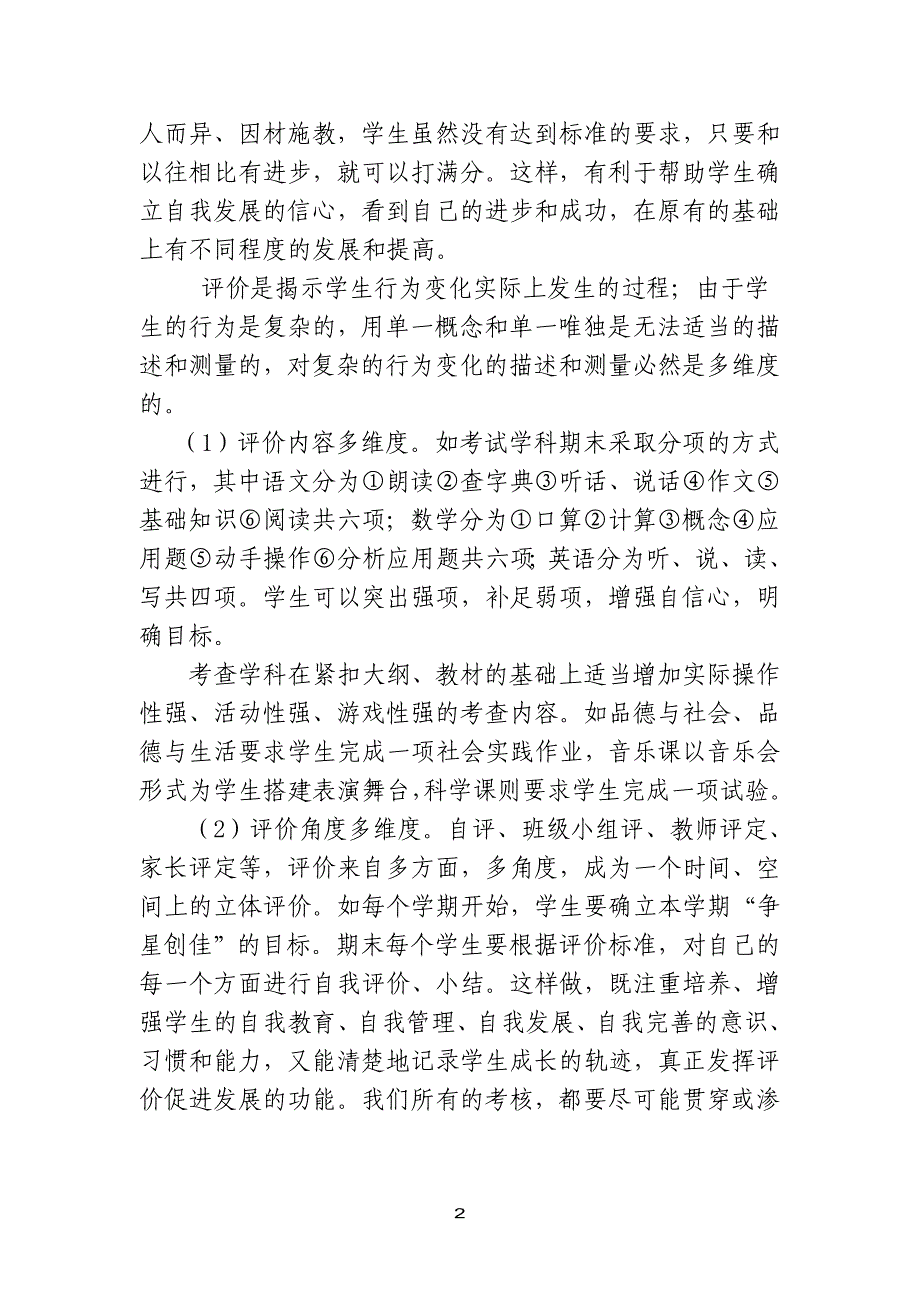 人而异、因材施教，学生虽然没有达到标准的要求，只要和
以往相比有进步，就可以打满分。这样，有利于帮助学生确
立自我发展的信心，看到自己的进步和成功，在原有的基础
上有不同程度的发展和提高。
评价是揭示学生行为变化实际上发生的过程；由于学
生的行为是复杂的，用单一概念和单一唯独是无法适当的描
述和测量的，对复杂的行为变化的描述和测量必然是多维度
的。
（1）评价内容多维度。如考试学科期末采取分项的方式
进行，其中语文分为①朗读②查字典③听话、说话④作文⑤
基础知识⑥阅读共六项；数学分为①口算②计算③概念④应
用题⑤动手操作⑥分析应用题共六项；英语分为听、说、读、
写共四项。学生可以突出强项，补足弱项，增强自信心，明
确目标。
考查学科在紧扣大纲、教材的基础上适当增加实际操作
性强、活动性强、游戏性强的考查内容。如品德与社会、品
德与生活要求学生完成一项社会实践作业，音乐课以音乐会
形式为学生搭建表演舞台，科学课则要求学生完成一项试验。
（2）评价角度多维度。自评、班级小组评、教师评定、
家长评定等，评价来自多方面，多角度，成为一个时间、空
间上的立体评价。如每个学期开始，学生要确立本学期“争
星创佳”的目标。期末每个学生要根据评价标准，对自己的
每一个方面进行自我评价、小结。这样做，既注重培养、增
强学生的自我教育、自我管理、自我发展、自我完善的意识、
习惯和能力，又能清楚地记录学生成长的轨迹，真正发挥评
价促进发展的功能。我们所有的考核，都要尽可能贯穿或渗
2